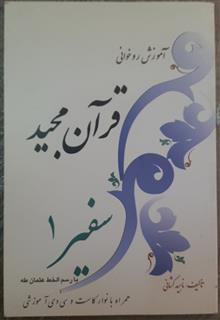 آموزش روخوانی
قرآن مجید
سفیر ۱
با رسم الخط عثمان طه
تألیف: ناهید گرشانی
همراه با نوار کاست و سی دی آموزشی